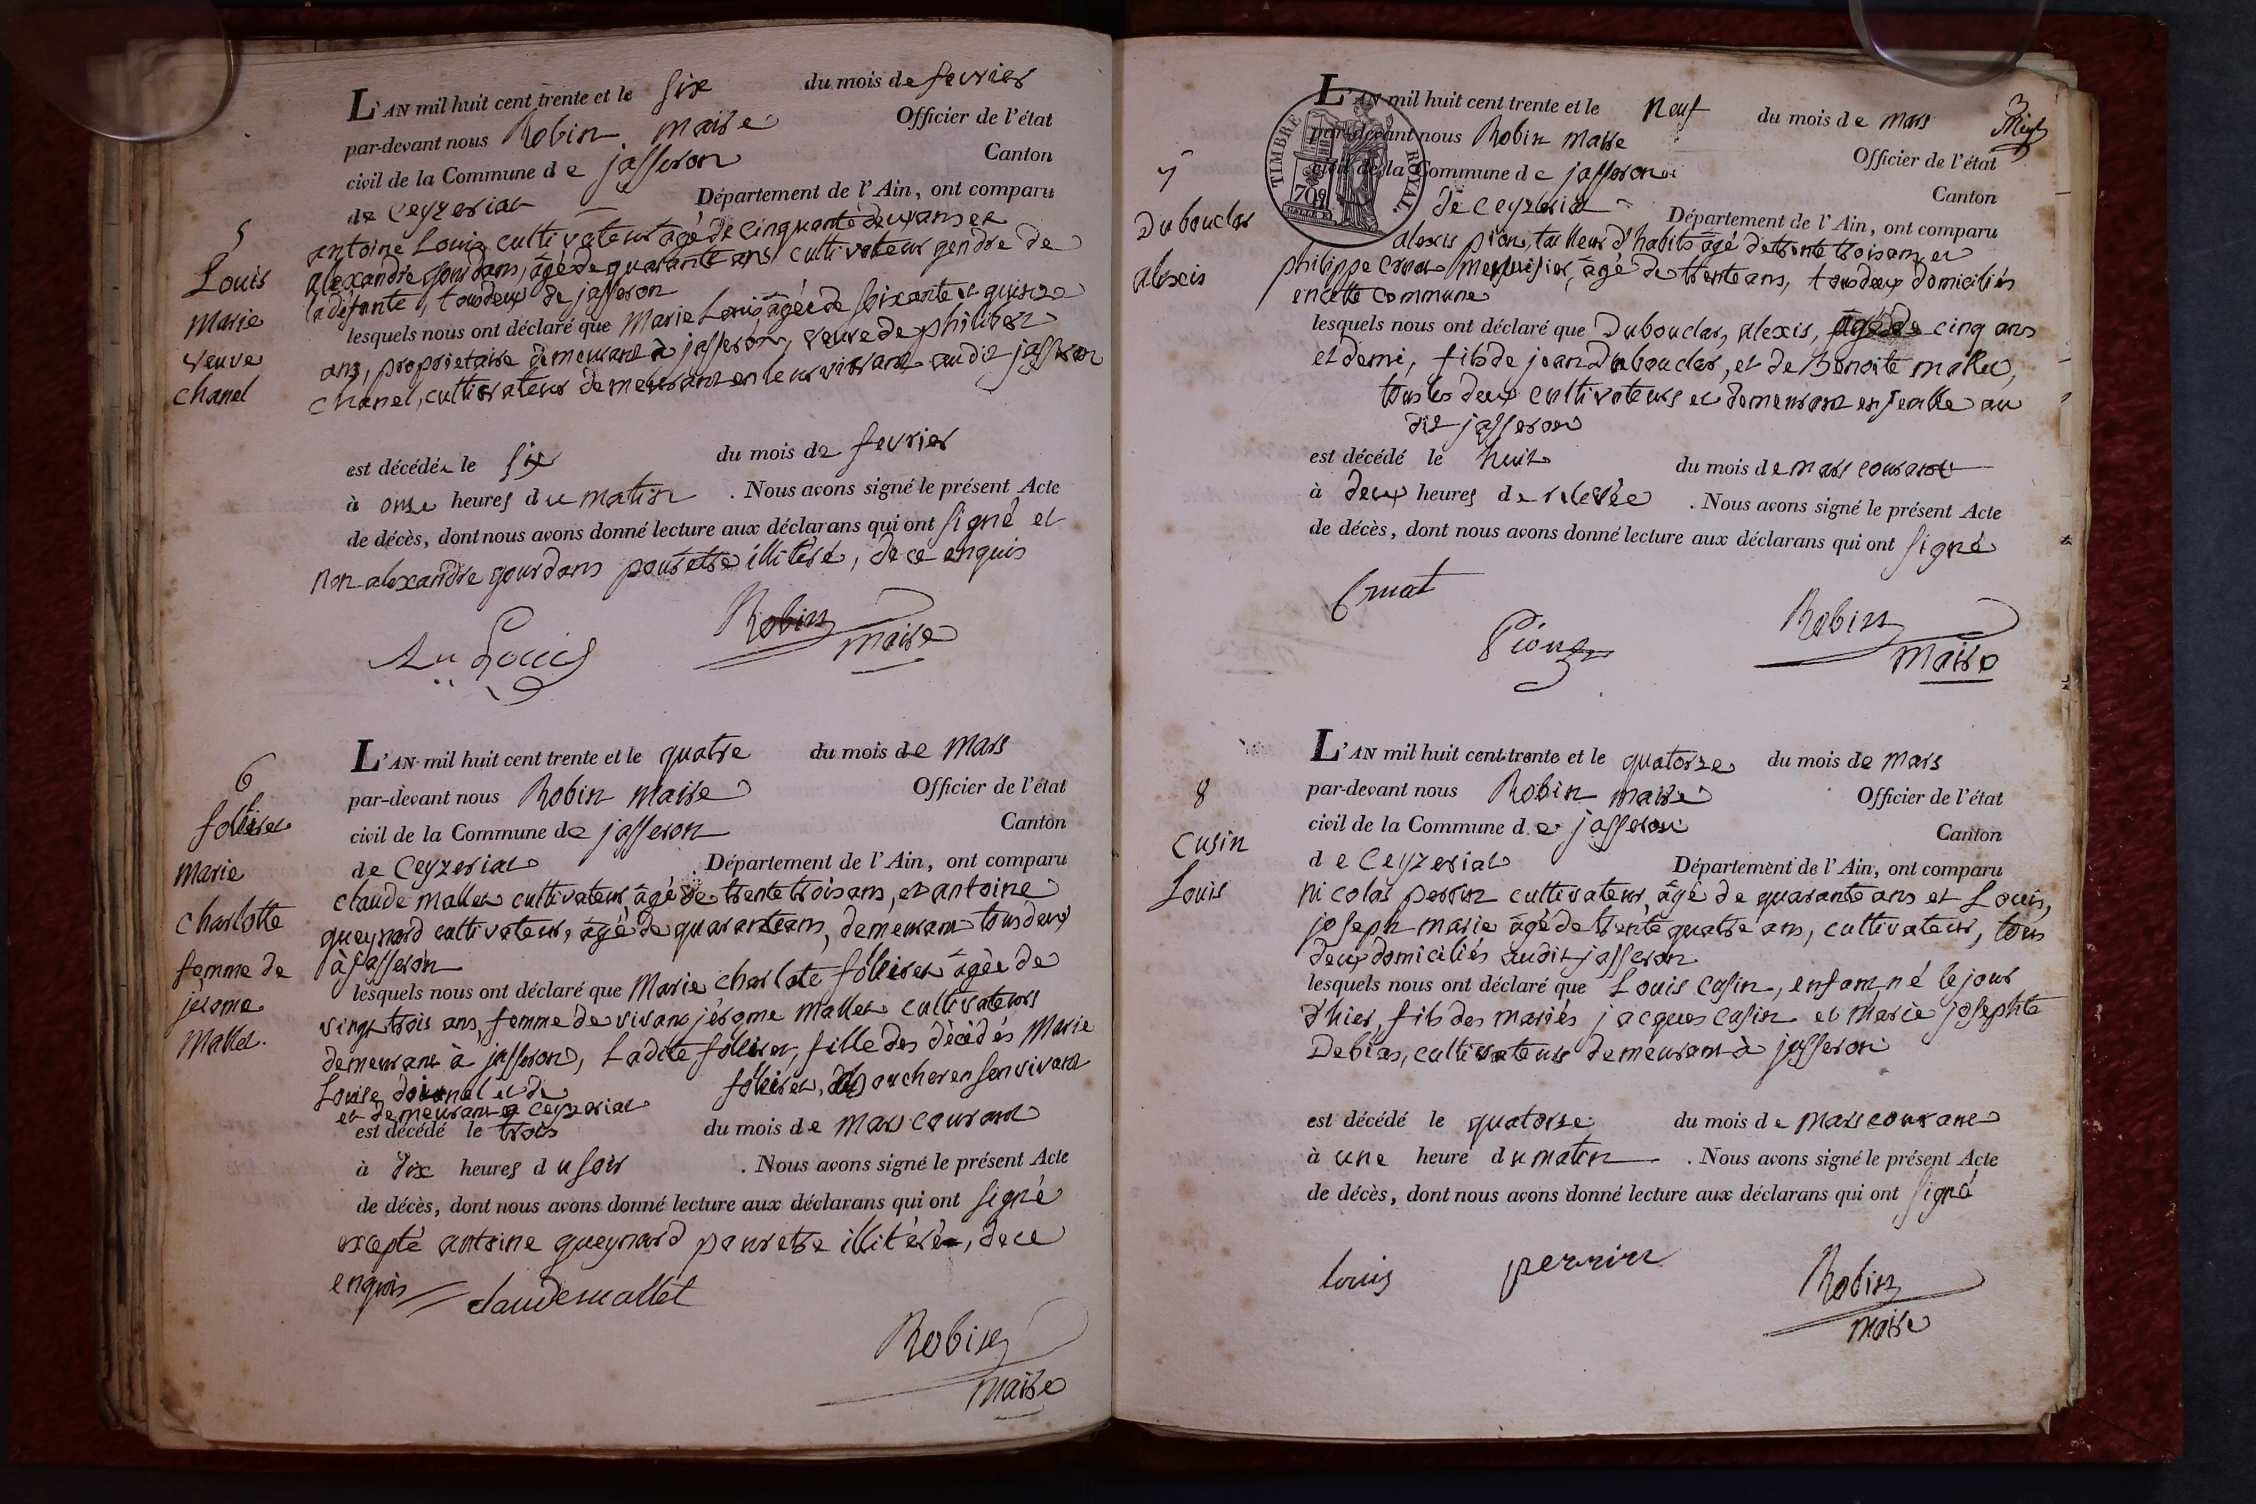 5
Louis
Marie
veuve
chanel
L'AN mil huit cent trente et le six du mois de fevrier
par-devant nous Robin maire Officier de l'état
civil de la Commune de jasseron Canton
de Ceyzeriat Département de l'Ain, ont comparu
antoine Louis cultivateur agé de cinquante deux ans et
alexandre gourdans, agé de quarante ans cultivateur gendre de
la défunte, tous deux de jasseron
lesquels nous ont déclaré que Marie Louis agée de soixante et quinze
ans, proprietaire demeurant à jasseron, veuve de philibert
chanel, cultivateur demeurant en leur vivant audit jasseron
est décédée le six du mois de fevrier
à onze heures du matin . Nous avons signé le présent Acte
de décès, dont nous avons donné lecture aux déclarans qui ont signé et
non alexandre gourdans pour etre illitéré, de ce enquis
An Louis
Robin
maire
6
folliet
marie
charlotte
femme de
jérome
Mallet.
L'AN mil huit cent trente et le quatre du mois de Mars
par-devant nous Robin Maire Officier de l'état
civil de la Commune de jasseron Canton
de Ceyzeriat . Département de l'Ain, ont comparu
claude Mallet cultivateur, âgé de trente trois ans, et antoine
queynard cultivateur, âgé de quarante ans, demeurant tous deux
à jasseron
lesquels nous ont déclaré que Marie charlote agée de
vingt trois ans, femme de vivant jérome Mallet cultivateurs
demeurant à jasseron, Ladite fille des décédés Marie
Louise et de boucher en son vivant
et demeurant a ceyzeriat
est décédé le trois du mois de mars courant
à dix heures du soir . Nous avons signé le présent Acte
de décès, dont nous avons donné lecture aux déclarans qui ont signé
excepté antoine queynard pour etre illitéré, de ce
enquis
claude mallet
Robin
Maire
3
TIMBRE ROYAL.
70c
7
Dubouclar
alexis
L'AN mil huit cent trente et le Neuf du mois de mars
par-devant nous Robin Maire Officier de l'état
civil de la Commune de jasseron Canton
de Ceyzeriat Département de l'Ain, ont comparu
alexis pion, tailleur d'habits âgé de trente trois ans et
philippe menuisier, âgé de trente ans, tous deux domiciliés
en cette Commune
lesquels nous ont déclaré que Dubouclar, alexis, agé de cinq ans
et demi, fils de jean Dubouclar, et de Benoite mallet,
tous les deux cultivateurs et demeurant ensemble au
dit jasseron
est décédé le huit du mois de mars courant
à deux heures de relevée . Nous avons signé le présent Acte
de décès, dont nous avons donné lecture aux déclarans qui ont signé
Pion
Robin
Maire
8
Cusin
Louis
L'AN mil huit cent trente et le quatorze du mois de Mars
par-devant nous Robin maire Officier de l'état
civil de la Commune de jasseron Canton
de Ceyzeriat Département de l'Ain, ont comparu
nicolas perrin cultivateur, âgé de quarante ans et Louis,
joseph marie âgé de trente quatre ans, cultivateur, tous
deux domiciliés audit jasseron
lesquels nous ont déclaré que Louis Cusin, enfant né le jour
d'hier, fils des mariés jacques Cusin et Marie josephte
Debias, cultivateurs demeurant à jasseron
est décédé le quatorze du mois de Mars courant
à une heure du matin . Nous avons signé le présent Acte
de décès, dont nous avons donné lecture aux déclarans qui ont signé
louis
perrin
Robin
maire